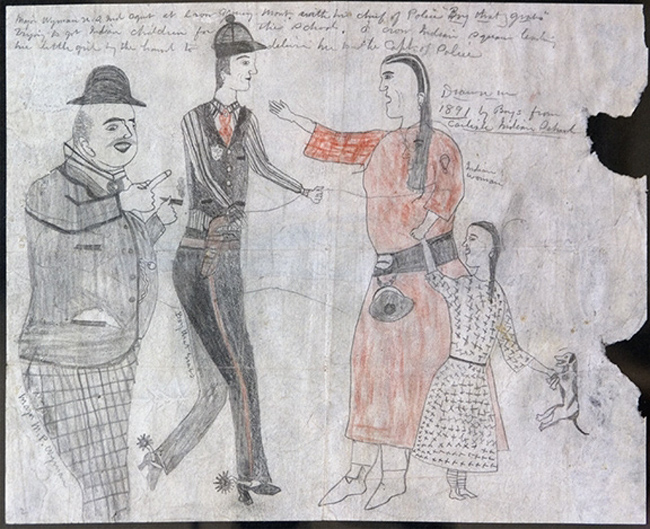 Major Wyman U.S. Ind Agent at Crow Agency Mont. with his chief of Police "Boy that Grabs"
Trying to get Indian children for the school. A Crow Indian squaw leading
her little girl by the hand to deliver her to the Capt. of Police
Drawn in
1891 by Boys from
Carlisle Indian School
Indian
woman
Boy that Grabs
Major M.P. Wyman